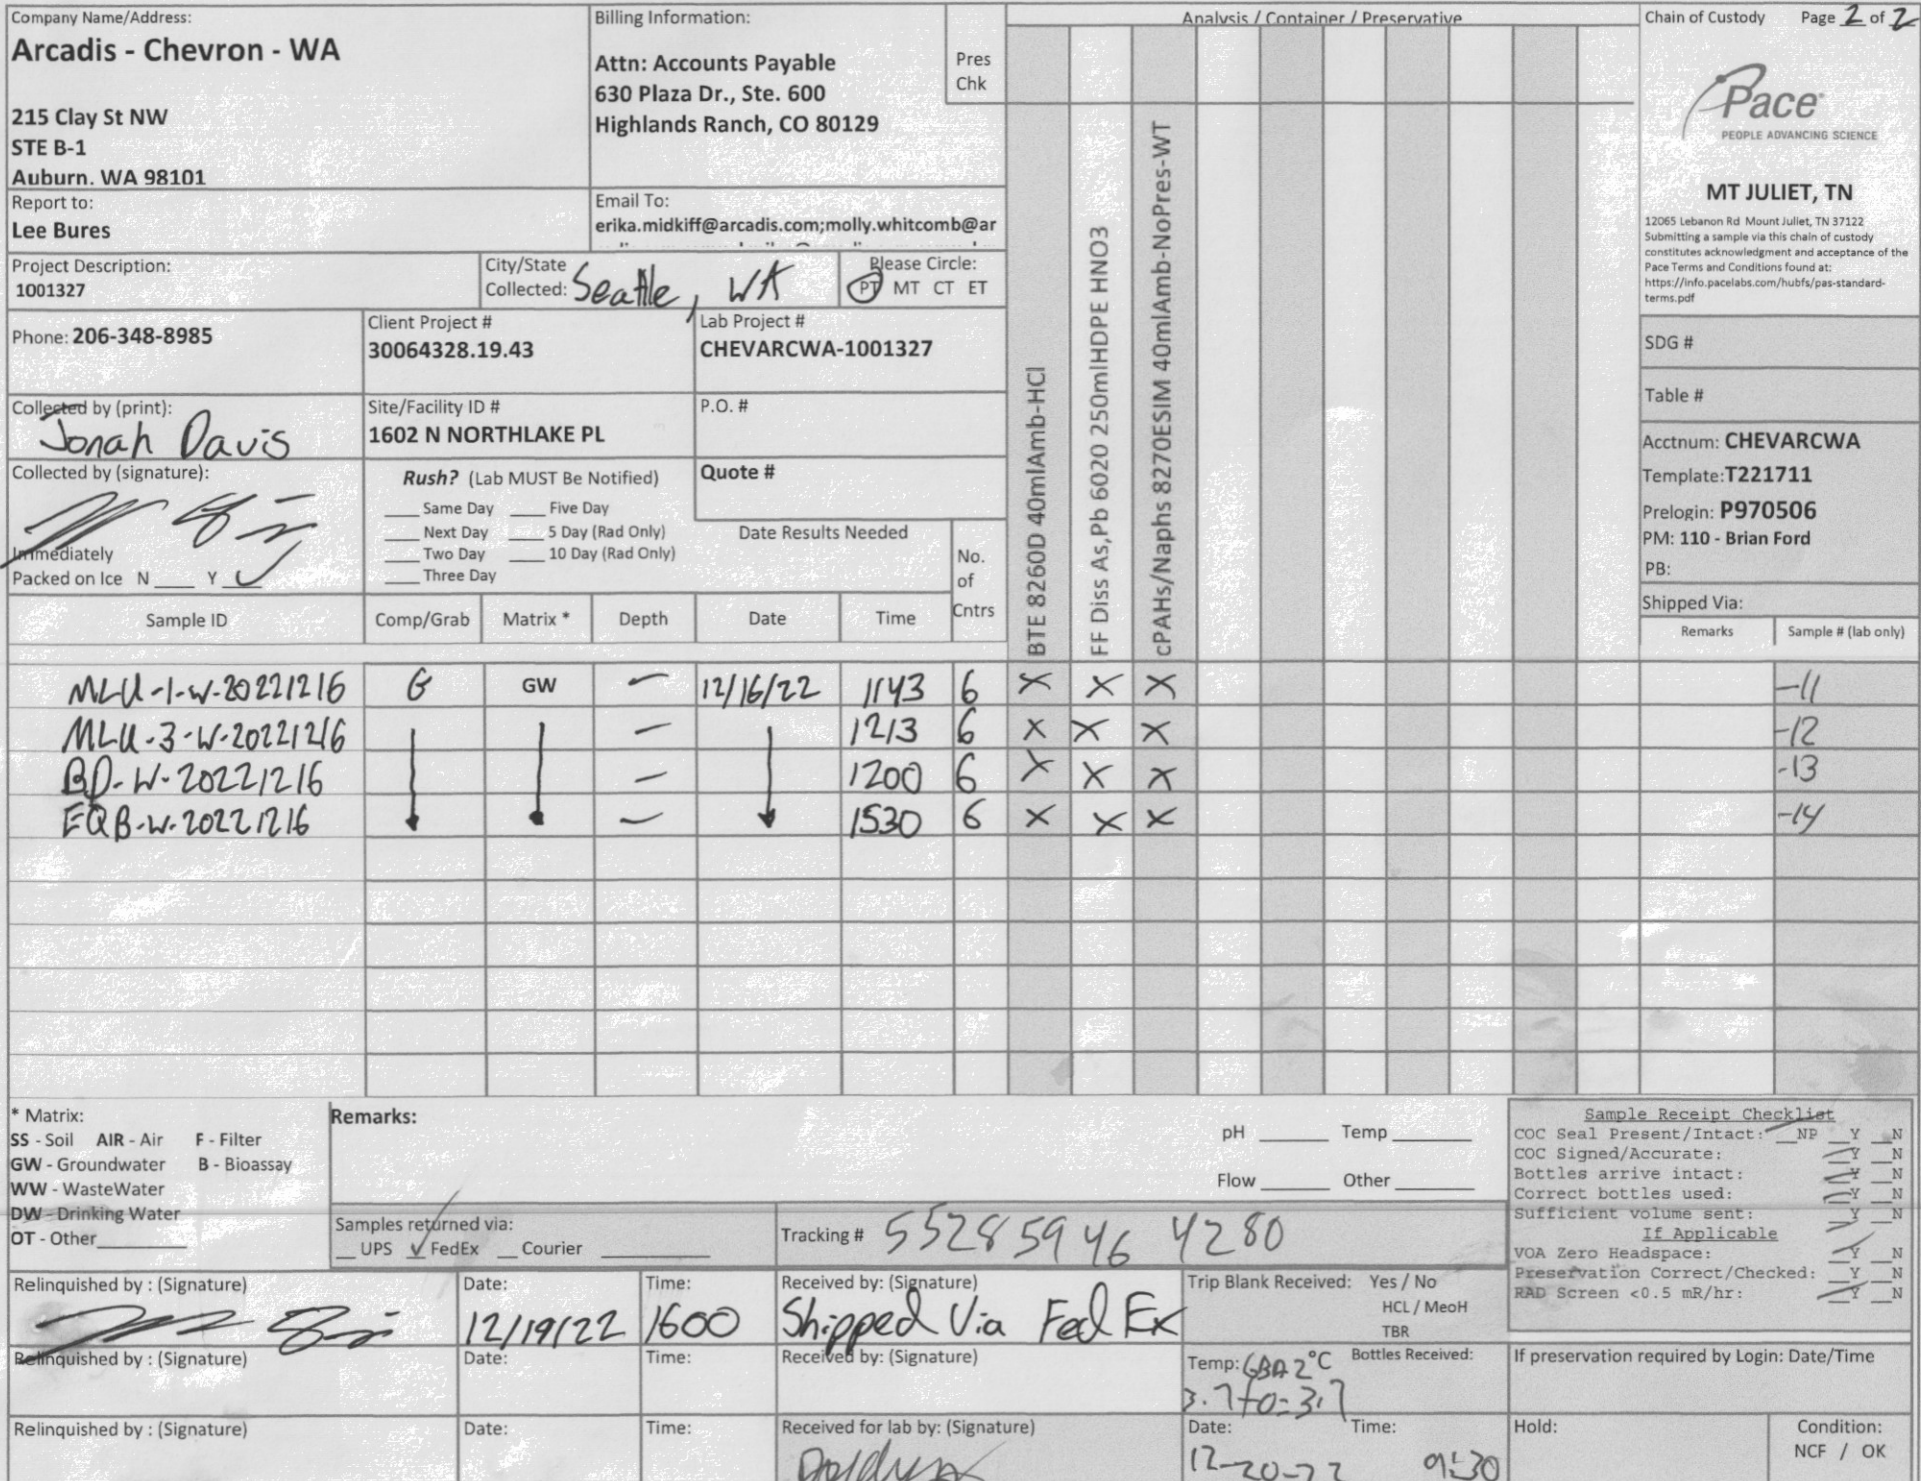 Company Name/Address:
Arcadis - Chevron - WA
215 Clay St NW
STE B-1
Auburn. WA 98101
Billing Information:
Attn: Accounts Payable
630 Plaza Dr., Ste. 600
Highlands Ranch, CO 80129
Pres
Chk
Analysis / Container / Preservative
Chain of Custody Page 2 of 2
Pace
PEOPLE ADVANCING SCIENCE
MT JULIET, TN
12065 Lebanon Rd Mount Juliet, TN 37122
Submitting a sample via this chain of custody
constitutes acknowledgment and acceptance of the
Pace Terms and Conditions found at:
https://info.pacelabs.com/hubfs/pas-standard-
terms.pdf
Report to:
Lee Bures
Email To:
erika.midkiff@arcadis.com;molly.whitcomb@ar
Project Description:
1001327
City/State
Collected: Seattle, WA
Please Circle:
PT MT CT ET
Phone: 206-348-8985
Client Project #
30064328.19.43
Lab Project #
CHEVARCWA-1001327
Collected by (print):
Jonah Davis
Site/Facility ID #
1602 N NORTHLAKE PL
P.O. #
Collected by (signature):
Immediately
Packed on Ice N ____ Y ____
Rush? (Lab MUST Be Notified)
____ Same Day ____ Five Day
____ Next Day ____ 5 Day (Rad Only)
____ Two Day ____ 10 Day (Rad Only)
____ Three Day
Quote #
Date Results Needed
No.
of
Cntrs
BTE 8260D 40mlAmb-HCl
FF Diss As,Pb 6020 250mlHDPE HNO3
cPAHs/Naphs 8270ESIM 40mlAmb-NoPres-WT
SDG #
Table #
Acctnum: CHEVARCWA
Template:T221711
Prelogin: P970506
PM: 110 - Brian Ford
PB:
Shipped Via:
Sample ID Comp/Grab Matrix * Depth Date Time Remarks Sample # (lab only)
MLU-1-W-20221216 G GW — 12/16/22 1143 6 X X X -11
MLU-3-W-20221216 — 1213 6 X X X -12
BD-W-20221216 — 1200 6 X X X -13
EQB-W-20221216 — 1530 6 X X X -14
* Matrix:
SS - Soil AIR - Air F - Filter
GW - Groundwater B - Bioassay
WW - WasteWater
DW - Drinking Water
OT - Other
Remarks:
pH ______ Temp ______
Flow ______ Other ______
Samples returned via:
__ UPS ✓ FedEx __ Courier
Tracking # 5528 5946 4280
Sample Receipt Checklist
COC Seal Present/Intact: __NP __Y __N
COC Signed/Accurate: __Y __N
Bottles arrive intact: __Y __N
Correct bottles used: __Y __N
Sufficient volume sent: __Y __N
If Applicable
VOA Zero Headspace: __Y __N
Preservation Correct/Checked: __Y __N
RAD Screen <0.5 mR/hr: __Y __N
Relinquished by : (Signature) Date: 12/19/22 Time: 1600
Received by: (Signature)
Shipped Via Fed Ex
Trip Blank Received: Yes / No
HCL / MeoH
TBR
Relinquished by : (Signature) Date: Time: Received by: (Signature)
Temp: °C Bottles Received:
3.7+0=3.7
If preservation required by Login: Date/Time
Relinquished by : (Signature) Date: Time: Received for lab by: (Signature)
Date: 12-20-22 Time: 9:30
Hold:
Condition:
NCF / OK